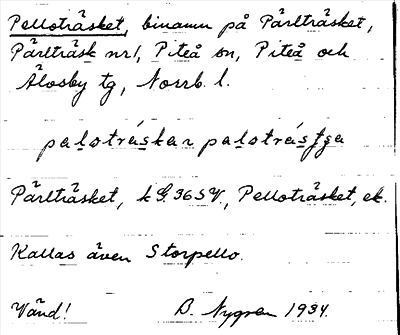 Pelloträsket, binamn på Pärlträsket,
Pärlträsk nr 1, Piteå sn, Piteå och
Älvsby tg, Norrb. l.
paloträskar paloträsʃga
Pärlträsket, k G. 365 V., Pelloträsket, ek.
Kallas även Storpello.
Vänd! B. Nygren 1934.